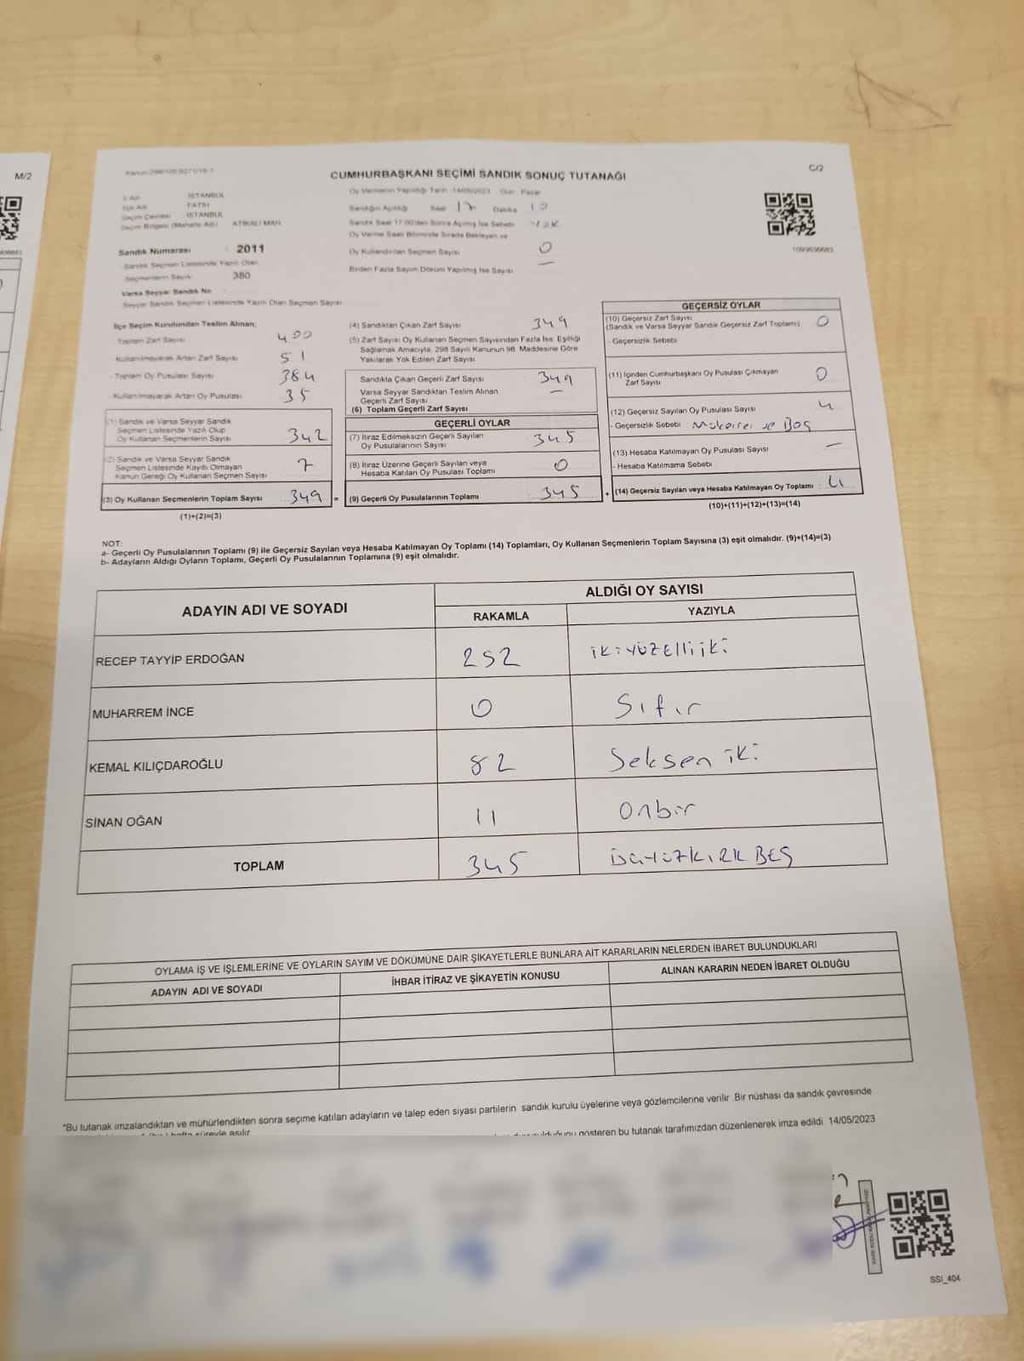 M/2
C/2
CUMHURBAŞKANI SEÇİMİ SANDIK SONUÇ TUTANAĞI
İSTANBUL
FATİH
İSTANBUL
Sandık Numarası 2011
380
Varsa Seyyar Sandık No
Oy Kullandırılan Seçmen Sayısı 0
Birden Fazla Sayım Döküm Yapılmış İse Sayısı —
İlçe Seçim Kurulundan Teslim Alınan;
Toplam Zarf Sayısı 400
Kullanılmayarak Artan Zarf Sayısı 51
- Toplam Oy Pusulası Sayısı 384
- Kullanılmayarak Artan Oy Pusulası 35
(1) Sandık ve Varsa Seyyar Sandık
Seçmen Listesinde Yazılı Olup
Oy Kullanan Seçmenlerin Sayısı 342
(2) Sandık ve Varsa Seyyar Sandık
Seçmen Listesinde Kayıtlı Olmayan
Kanun Gereği Oy Kullanan Seçmen Sayısı 7
(3) Oy Kullanan Seçmenlerin Toplam Sayısı 349 =
(1)+(2)=(3)
(4) Sandıktan Çıkan Zarf Sayısı 349
(5) Zarf Sayısı Oy Kullanan Seçmen Sayısından Fazla İse, Eşitliği
Sağlamak Amacıyla, 298 Sayılı Kanunun 98. Maddesine Göre
Yakılarak Yok Edilen Zarf Sayısı
Sandıkta Çıkan Geçerli Zarf Sayısı 349
Varsa Seyyar Sandıktan Teslim Alınan
Geçerli Zarf Sayısı —
(6) Toplam Geçerli Zarf Sayısı
GEÇERLİ OYLAR
(7) İtiraz Edilmeksizin Geçerli Sayılan
Oy Pusulalarının Sayısı 345
(8) İtiraz Üzerine Geçerli Sayılan veya
Hesaba Katılan Oy Pusulası Toplamı 0
(9) Geçerli Oy Pusulalarının Toplamı 345 +
GEÇERSİZ OYLAR
(10) Geçersiz Zarf Sayısı
(Sandık ve Varsa Seyyar Sandık Geçersiz Zarf Toplamı) 0
- Geçersizlik Sebebi
(11) İçinden Cumhurbaşkanı Oy Pusulası Çıkmayan
Zarf Sayısı 0
(12) Geçersiz Sayılan Oy Pusulası Sayısı 4
- Geçersizlik Sebebi ve Boş
(13) Hesaba Katılmayan Oy Pusulası Sayısı —
- Hesaba Katılmama Sebebi
(14) Geçersiz Sayılan veya Hesaba Katılmayan Oy Toplamı 4
(10)+(11)+(12)+(13)=(14)
NOT:
a- Geçerli Oy Pusulalarının Toplamı (9) ile Geçersiz Sayılan veya Hesaba Katılmayan Oy Toplamı (14) Toplamları, Oy Kullanan Seçmenlerin Toplam Sayısına (3) eşit olmalıdır. (9)+(14)=(3)
b- Adayların Aldığı Oyların Toplamı, Geçerli Oy Pusulalarının Toplamına (9) eşit olmalıdır.
ADAYIN ADI VE SOYADI
ALDIĞI OY SAYISI
RAKAMLA YAZIYLA
RECEP TAYYİP ERDOĞAN 252 ikiyüzelliiki
MUHARREM İNCE 0 Sıfır
KEMAL KILIÇDAROĞLU 82 Seksen iki
SİNAN OĞAN 11 Onbir
TOPLAM 345 üçyüzkırkBEŞ
OYLAMA İŞ VE İŞLEMLERİNE VE OYLARIN SAYIM VE DÖKÜMÜNE DAİR ŞİKAYETLERLE BUNLARA AİT KARARLARIN NELERDEN İBARET BULUNDUKLARI
ADAYIN ADI VE SOYADI İHBAR İTİRAZ VE ŞİKAYETİN KONUSU ALINAN KARARIN NEDEN İBARET OLDUĞU
*Bu tutanak imzalandıktan ve mühürlendikten sonra seçime katılan adayların ve talep eden siyasi partilerin sandık kurulu üyelerine veya gözlemcilerine verilir. Bir nüshası da sandık çevresinde
gösteren bu tutanak tarafımızdan düzenlenerek imza edildi. 14/05/2023
SSI_404